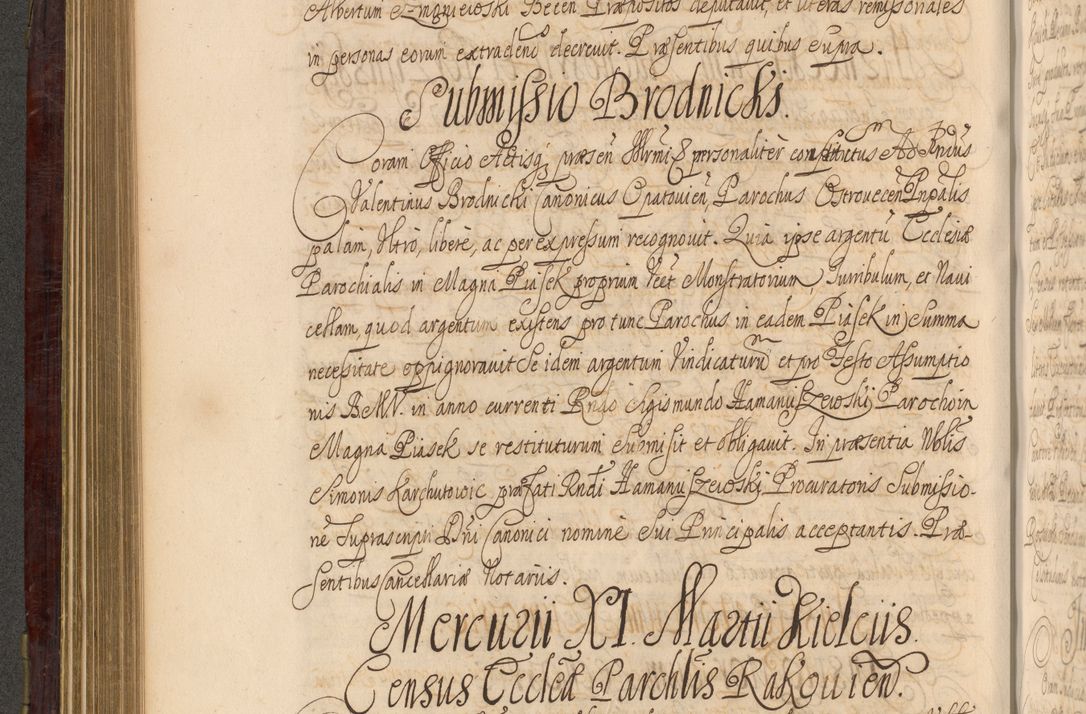 Albertum Szmgniewoski Becen Præpositos deputavit, et literas remissoriales
in personas eorum extraden̄ decrevit. Præsentibus quibus supra.
Submissio Brodnicki.
Coram Officio Actisq; præsen̄ personaliter constitutus Ad Rn̄dus
Valentinus Brodnicki Canonicus Opatovien̄, Parochus Ostrovecen̄ Pn̄palis
palam, Vtro, liberè, ac per expressum recognovit. Quia ipse argentū Ecclesiæ
Parochialis in Magna Piasek proprium Veet Monstratorium, Turribulum, et Navi
cellam, quod argentum existens pro tunc Parochus in eadem Piasek in Summa
necessitate oppignoravit Se idem argentum Vindicaturū et pro Festo Assumptio
nis B.M.V. in anno currenti Rn̄do Sigismundo Hamanuiszewski Parocho in
Magna Piasek se restituturum Submisit et obligavit. In præsentia Nōblis
Simonis Karchutowic præfati Rn̄di Hamanuiszewski Procuratoris Submissio-
nē Suprascripti Dn̄i Canonici nominē Sui Principalis acceptantis. Præ-
sentibus Cancellariæ Notariis.
Mercurii XI. Martii Kielciis.
Census Eccleæ Parchlis Rakovien̄.